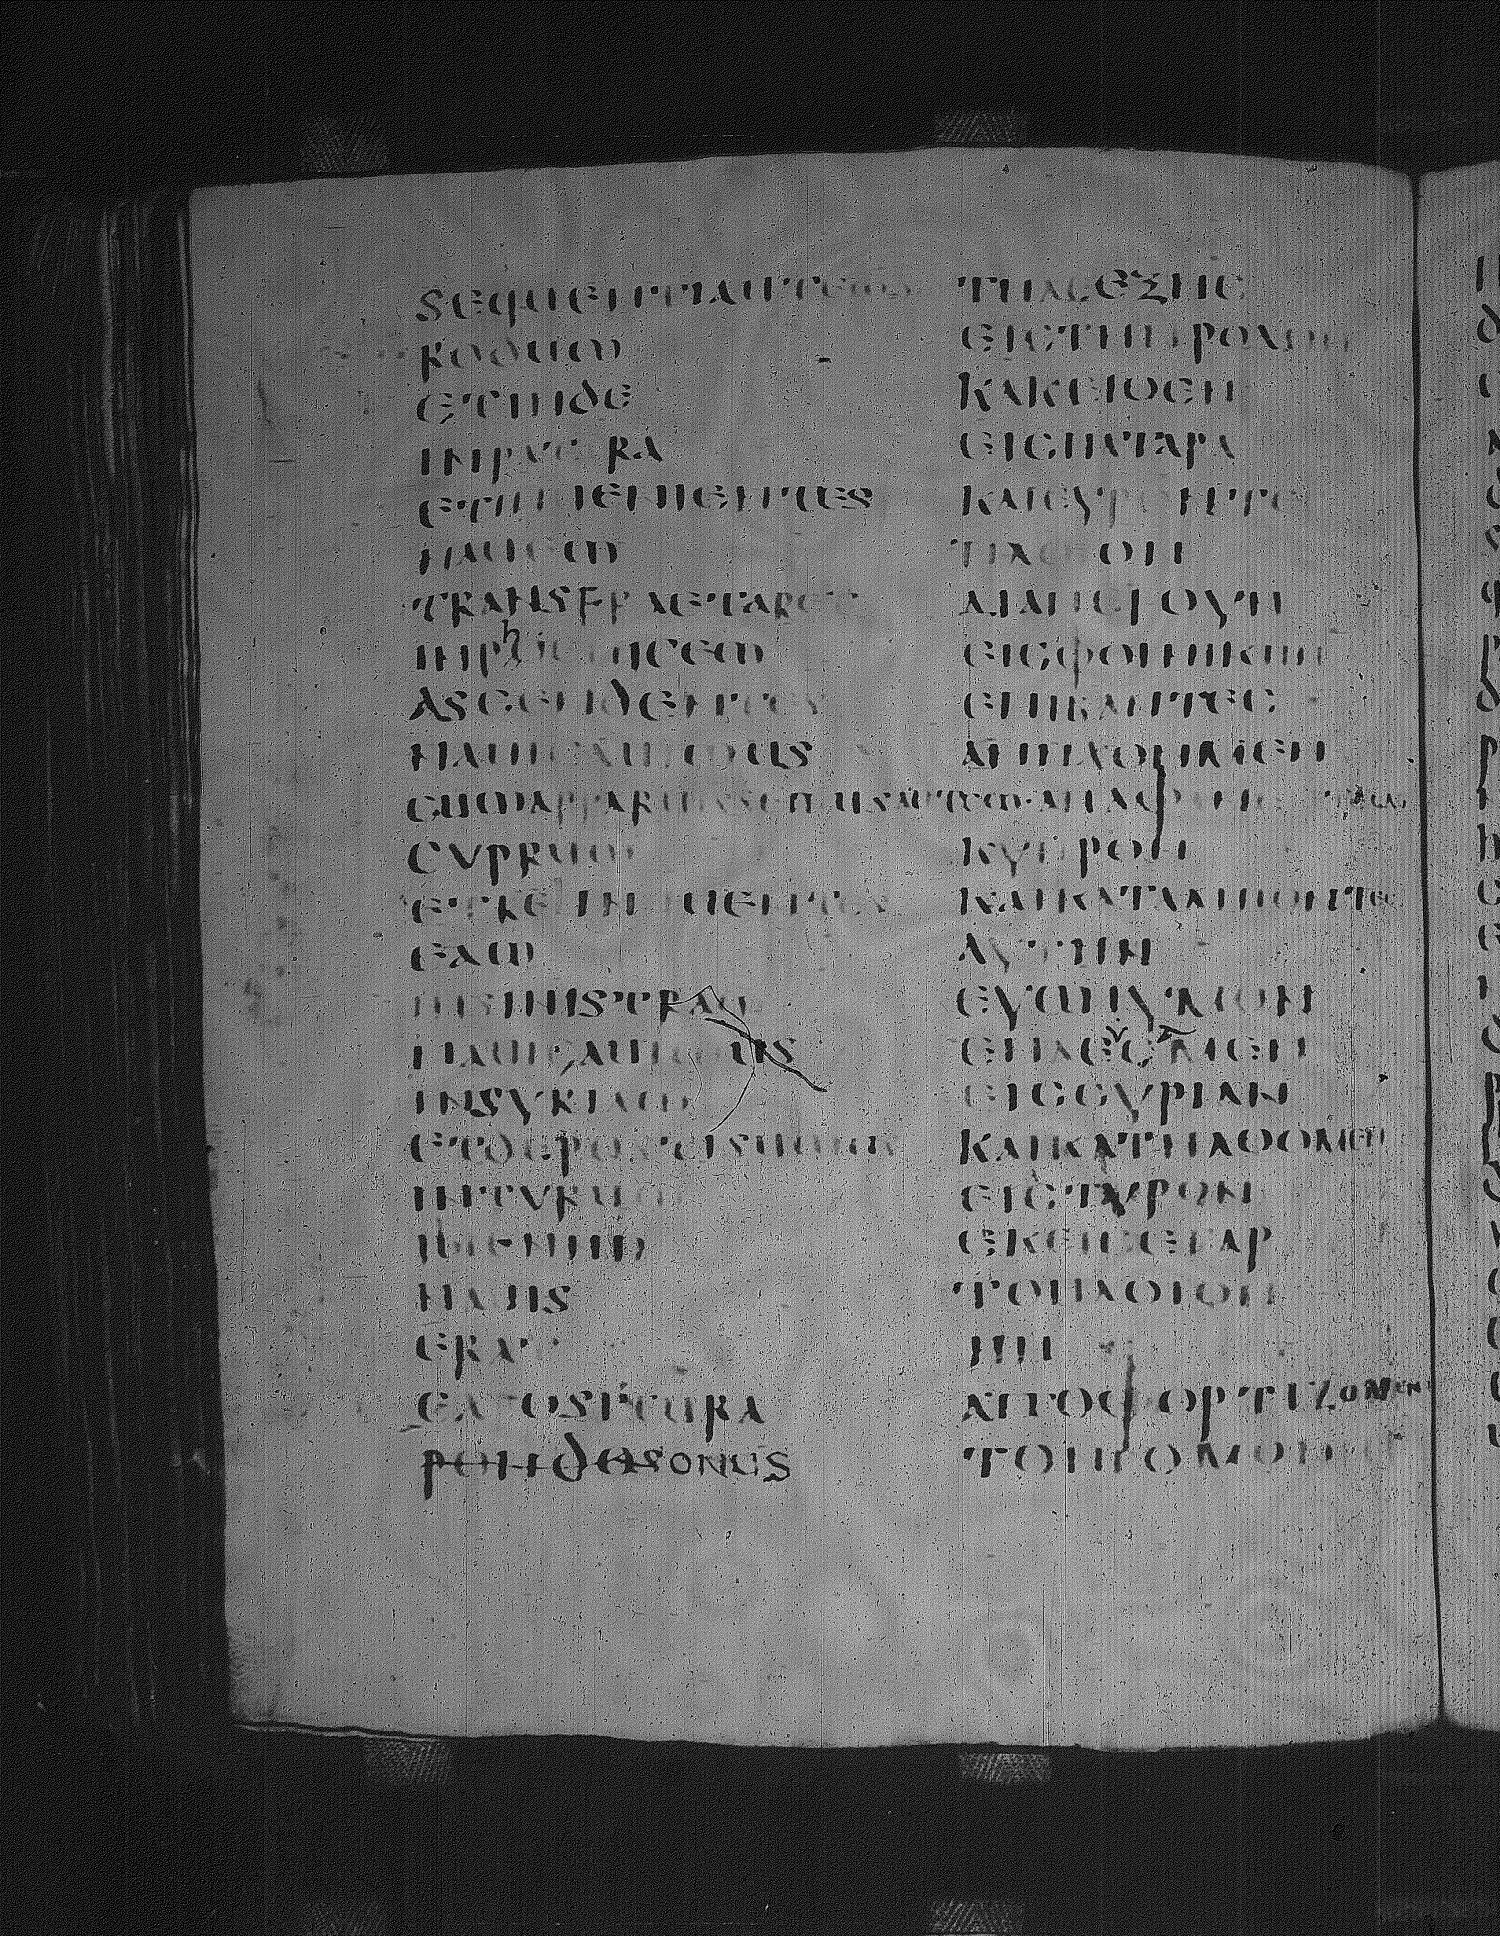 SEQUENTIAUTEM
RODUM
ETINDE
INPATARA
ETINUENIENTES
NAUEM
TRANSFRETARE
INPHOENICEM
ASCENDENTES
NAUIGAUIMUS
CUMAPPARUISSEMUSAUTEM
CYPRUM
ETRELINQUENTES
EAM
ASINISTRA
NAUIGAUIMUS
INSYRIAM
ETDEPOSITISUMUS
INTYRUM
IBIENIM
NAUIS
ERAT
EXPOSITURA
PONDUSONUS
ΤΗΔΕΕΞΗΣ
ΕΙΣΤΗΝΡΟΔΟΝ
ΚΑΚΕΙΘΕΝ
ΕΙΣΠΑΤΑΡΑ
ΚΑΙΕΥΡΟΝΤΕΣ
ΠΛΟΙΟΝ
ΔΙΑΠΕΡΟΥΝ
ΕΙΣΦΟΙΝΙΚΗΝ
ΕΠΙΒΑΝΤΕΣ
ΑΝΗΧΘΗΜΕΝ
ΑΝΑΦΑΝΕΝΤΕΣ
ΚΥΠΡΟΝ
ΚΑΙΚΑΤΑΛΙΠΟΝΤΕΣ
ΑΥΤΗΝ
ΕΥΩΝΥΜΟΝ
ΕΠΛΕΟΜΕΝ
ΕΙΣΣΥΡΙΑΝ
ΚΑΙΚΑΤΗΛΘΟΜΕΝ
ΕΙΣΤΥΡΟΝ
ΕΚΕΙΣΕΓΑΡ
ΤΟΠΛΟΙΟΝ
ΗΝ
ΑΠΟΦΟΡΤΙΖΟΜΕΝ
ΤΟΝΓΟΜΟΝ